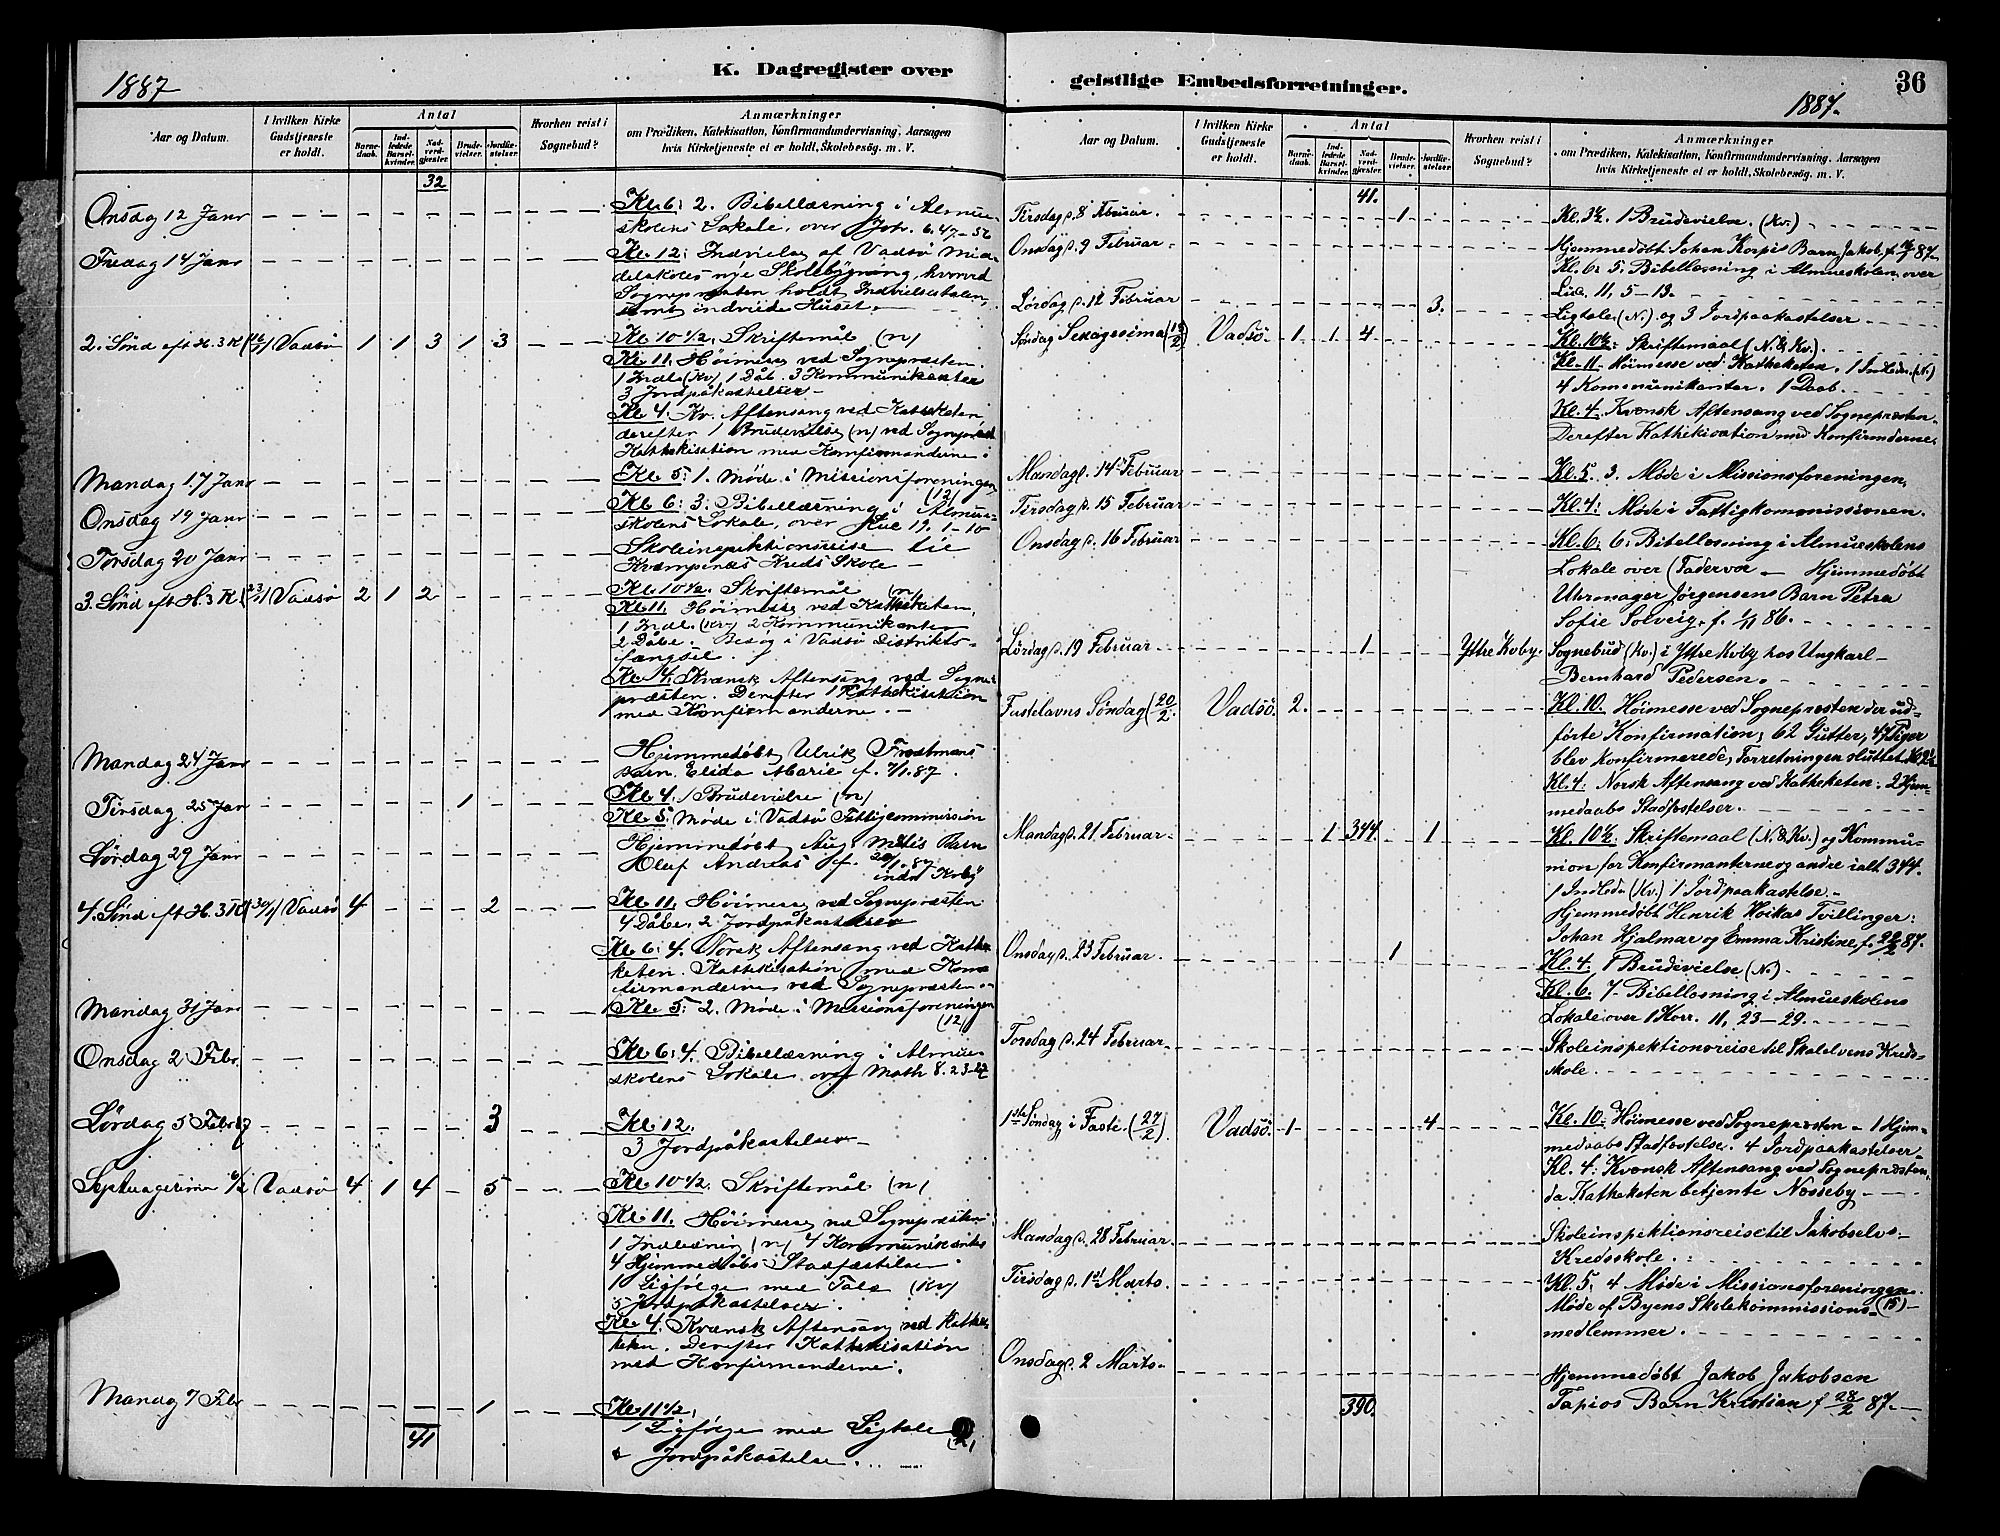 1887
K. Dagregister over
Aar og Datum.
I hvilken Kirke Gudstjeneste er holdt.
Antal
Barne-daab.
Ind-ledede Barsel-kvinder.
Nad-verd-gjester.
Brude-vielser.
Jordfæ-stelser.
Hvorhen reist i Sognebud?
Anmærkninger
om Prædiken, Katekisation, Konfirmandundervisning, Aarsagen
hvis Kirketjeneste ei er holdt, Skolebesøg. m. V.
32
Onsdag 12 Janr Kl 6: 2. Bibellæsning i Almue-
skolens Lokale, over Joh. 6. 47-56
Fredag 14 Janr Kl 12: Indvielse af Vadsö Mid-
delskoles nye Skolebygning, hvorved
Sognepræsten holdt Indvielsestalen,
samt indviede Huset.
2. Sönd eft H. 3 K (16/1) Vadsö 1 1 3 1 3 Kl 10 1/2. Skriftemål (n)
Kl 11. Höimesse ved Sognepræsten.
1 Indl. (Kv) 1 Dåb. 3 Kommunikanter
3 Jordpåkastelser -
Kl 4. Kv. Aftensang ved Katheketen
derefter 1 Brudevielse (n) ved Sognepræst
Kathekisation med Konfirmanderne.
Mandag 17 Janr Kl 5: 1. Möde i Missionsforeningen
(12)
Onsdag 19 Janr Kl 6: 3: Bibellæsning i Almue-
skolens Lokale, over Luc 19. 1-10
Torsdag 20 Janr Skoleinspektionsreise til
Kræmpenæs Kreds Skole -
3. Sönd eft H. 3 K (23/1) Vadsö 2 1 2 Kl 10 1/2. Skriftemål (n)
Kl 11. Höimesse ved Katheketen
1 Indl. (Kv) 2 Kommunikanter
2 Dåbe. Besög i Vadsö Distrikts-
fængsel.
Kl 4: Kvænsk Aftensang ved Sogne-
præsten. Derefter Kathekisation
med Konfirmanderne. -
Mandag 24 Janr Hjemmedöbt Ulrik Frostmans
Barn Elida Marie f. 7/1 87.
Tirsdag 25 Janr 1 Kl 4. 1 Brudevielse (n)
Kl 5. Möde i Vadsö Fattigcommission
Lördag 29 Janr Hjemmedöbt Aug. Barn
Oluf Andreas f. 20/1 87
indr Kvby
4. Sönd eft H. 3 K (30/1) Vadsö 4 2 Kl 11. Höimesse ved Sognepræsten
4 Dåbe, 2 Jordpåkastelser
Kl 6: 4. Norsk Aftensang ved Kathe-
keten. Kathekisation med Kon-
firmanderne ved Sognepræsten -
Mandag 31 Janr Kl 5: 2. Möde i Missionsforeningen
(12)
Onsdag 2 Febr. Kl 6: 4. Bibellæsning i Almue-
skolens Lokale over Math 8. 23-27
Lördag 5 Febr 3 Kl 12.
3 Jordpåkastelser -
Septuagesima 6/2 Vadsö 4 1 4 5 Kl 10 1/2. Skriftemål (n)
Kl 11. Höimesse ved Sognepræsten
1 Indledning (n) 4 Kommunikantes
4 Hjemmedåbs Stadfæstelser
1 Ligfölge med Tale (Kv)
5 Jordpåkastelser.
Kl 4. Kvænsk Aftensang ved Kathe-
keten. Derefter Kathekisation
med Konfirmanderne.
Mandag 7 Febr 1 Kl 11 1/2.
1 Ligfölge med Ligtale
& Jordpåkastelse.
41
geistlige Embedsforretninger.
36
1887.
Aar og Datum.
I hvilken Kirke Gudstjeneste er holdt.
Antal
Barne-daab.
Ind-ledede Barsel-kvinder.
Nad-verd-gjester.
Brude-vielser.
Jordfæ-stelser.
Hvorhen reist i Sognebud?
Anmærkninger
om Prædiken, Katekisation, Konfirmandundervisning, Aarsagen
hvis Kirketjeneste ei er holdt, Skolebesøg. m. V.
41.
Tirsdag d. 8 Februar. 1 Kl. 3½. 1 Brudevielse. (Kv.)
Onsdag d. 9 Februar. Hjemmedöbt Johan Korpis Barn Jakob, f. 87.
Kl. 6: 5. Bibellæsning i Almueskolen over
Luc. 11, 5-13.
Lördag d. 12 Februar 3. Ligtale (N.) og 3 Jordpaakastelser
Söndag Sexagesima (13/2) Vadsö. 1 1 4 Kl. 10½: Skriftemaal (N. & Kv.)
Kl. 11. Höimesse ved Katheketen. 1 Indledn. (N.)
4 Kommunikanter. 1 Daab.
Kl. 4. Kvensk Aftensang ved Sognepræsten
Derefter Kathekisation med Konfirmderne.
Mandag d. 14 Februar Kl. 5. 3. Möde i Missionsforeningen.
Tirsdag d. 15 Februar Kl. 4: Möde i Fattigkommissionen.
Onsdag d. 16 Februar Kl. 6: 6: Bibellæsning i Almueskolens
Lokale over Fadervor - Hjemmedöbt
Uhrmager Jörgensens Barn Petra
Sofie Solveig, f. 1/11 86.
Lördag d. 19 Februar 1 Yttre Kvby. Sognebud (Kv.) i Yttre Kvby hos Ungkarl
Bernhard Pedersen.
Fastelavns Söndag (20/2). Vadsö. 2. Kl. 10. Höimesse ved Sognepresten der ud-
förte Konfirmation, 62 Gutter, 49 Piger
blev konfirmerede, Forretningen sluttet Kl 2½
Kl. 4: Norsk Aftensang ved Katheketen: 2 Hjem-
medaabs Stadfæstelser.
Mandag d. 21 Februar. 1 344. 1 Kl. 10½. Skriftemaal (N. & Kv.) og Kommu-
nion for Konfirmanterne og andre ialt 344.
1 Indledn (Kv.) 1 Jordpaakastelse -
Hjemmedöbt Henrik Hoikas Tvillinger:
Johan Hjalmar og Emma Kristine, f. 22/2 87.
Onsdag d. 23 Februar. 1 Kl. 4. 1 Brudevielse (N.)
Kl. 6. 7- Bibellæsning i Almueskolens
Lokale over 1 Korr. 11, 23-29.
Torsdag d. 24 Februar. Skoleinspektionsreise til Skalelvens Kreds-
skole.
1ste Söndag i Faste. (27/2). Vadsö. 1 4 Kl. 10: Höimesse ved Sognepresten - 1 Hjem-
medaabs Stadfæstelse. 4 Jordpaakastelser
Kl. 4: Kvensk Aftensang ved Sognepræsten,
da Katheketen betjente Nesseby -
Mandag d. 28 Februar. Skoleinspektionsreise til Jakobselvs
Kredsskole.
Tirsdag d. 1st Marts. Kl. 5: 4 Möde i Missionsforeningen.
Möde af Byens Skolekommissions- (15)
medlemmer.
Onsdag d. 2 Marts. Hjemmedöbt Jakob Jakobsen
Tapios Barn Kristian f 28/2 87. -
390.